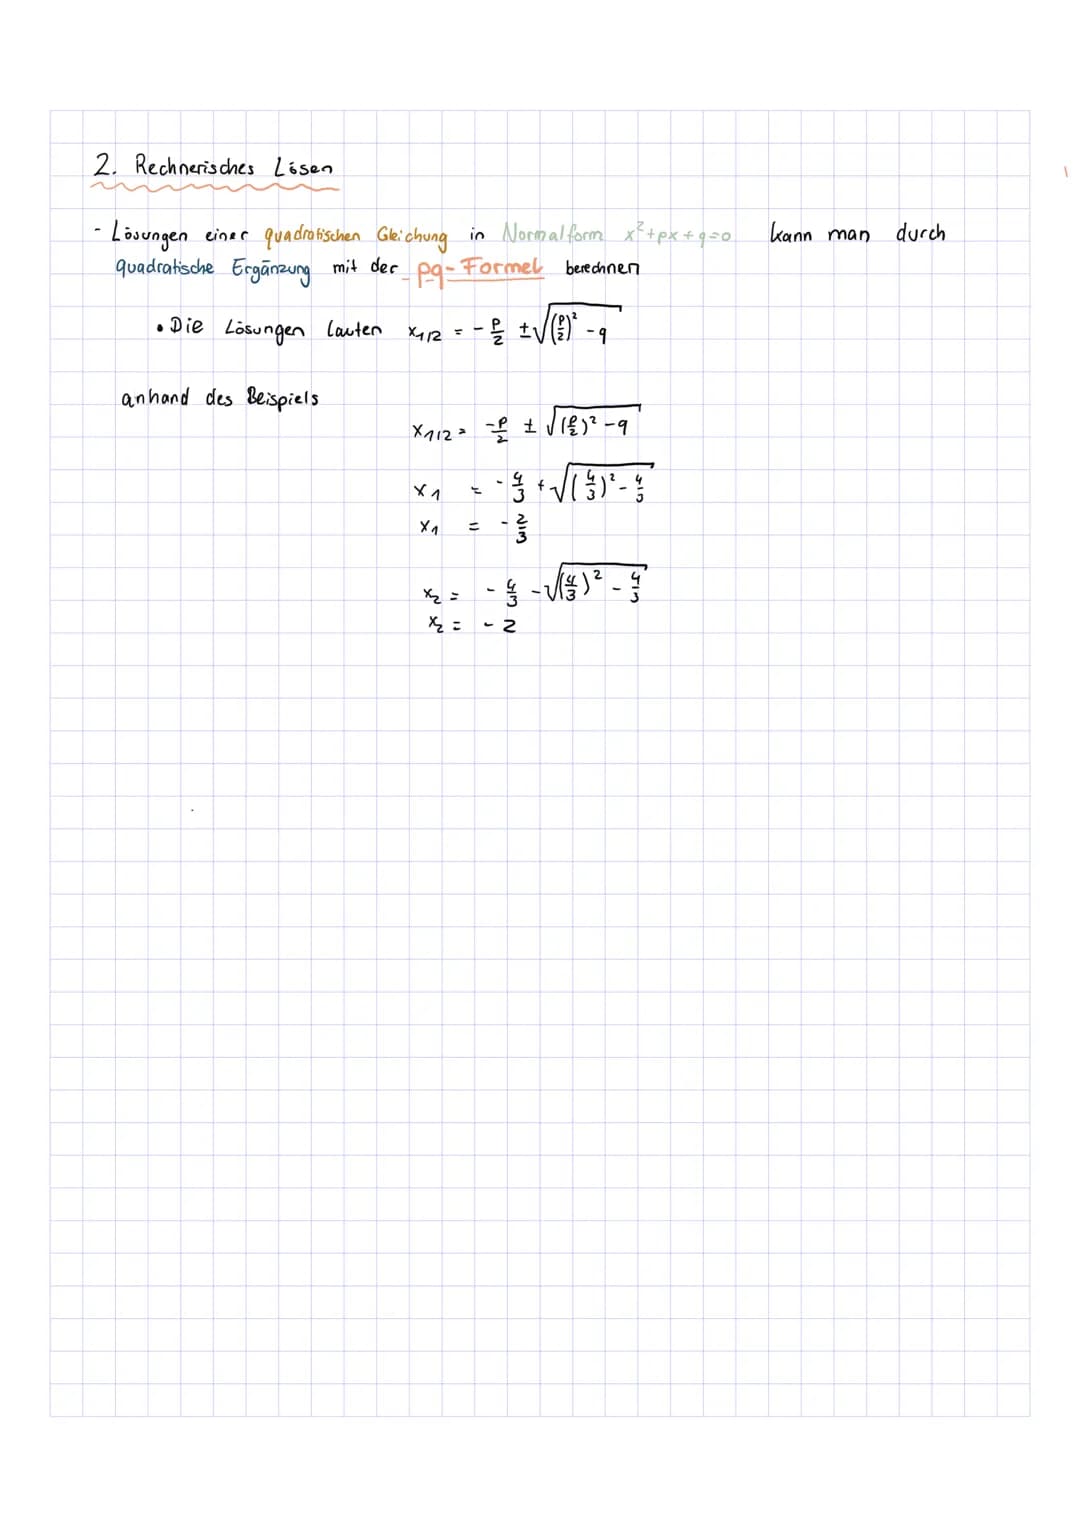 2. Rechnerisches Lösen
- Lösungen einer quadratischen Gleichung in Normalform x²+px+q=0 kann man durch
quadratische Ergänzung mit der pq-Formel berechnen
• Die Lösungen lauten x1/2 = -p/2 ±√((p/2)² -q)
anhand des Beispiels
x1/2 = -p/2 ± √((p/2)² -q)
x1 = -4/3 +√((4/3)² - 4/3)
x1 = -2/3
x2 = -4/3 -√((4/3)² - 4/3)
x2 = -2